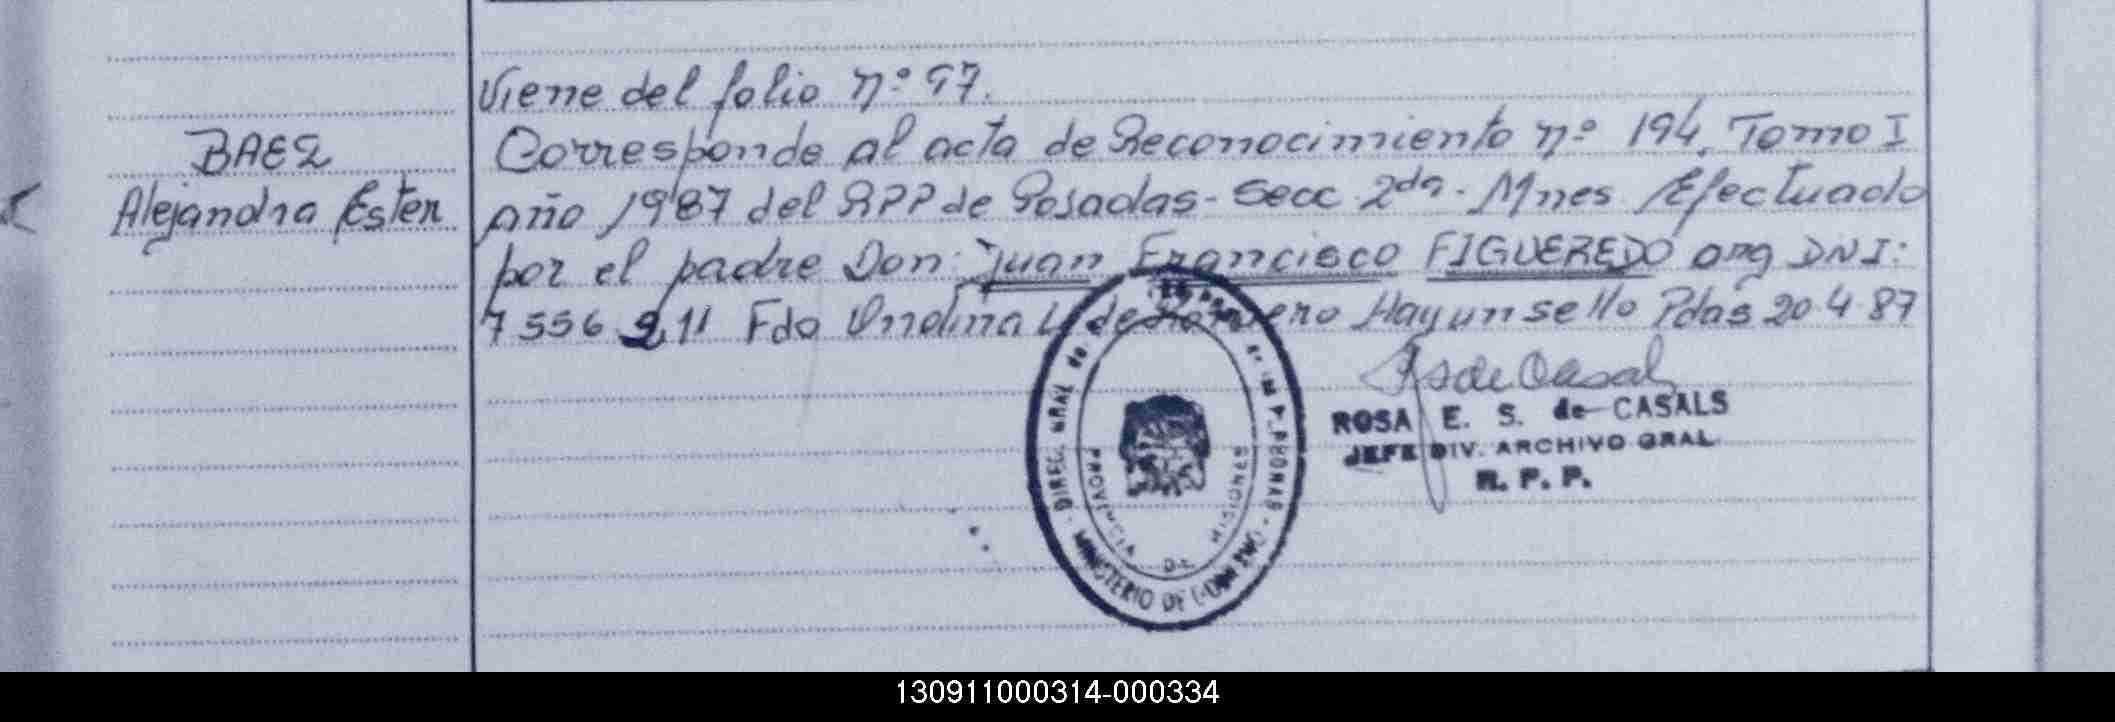 Viene del folio nº 97.
BAEZ
Alejandra Ester
Corresponde al acta de Reconocimiento nº 194. Tomo I
año 1987 del RPP de Posadas - Secc 2da - Mnes Efectuado
por el padre Don Juan Francisco FIGUEREDO arg DNI:
7556 211 Fdo Hay un sello Pdas 20.4.87
ROSA E. S. de CASALS
JEFE DIV. ARCHIVO GRAL.
R. P. P.
DIREC. GRAL. de
PROVINCIA DE MISIONES
MINISTERIO DE GOBIERNO
130911000314-000334